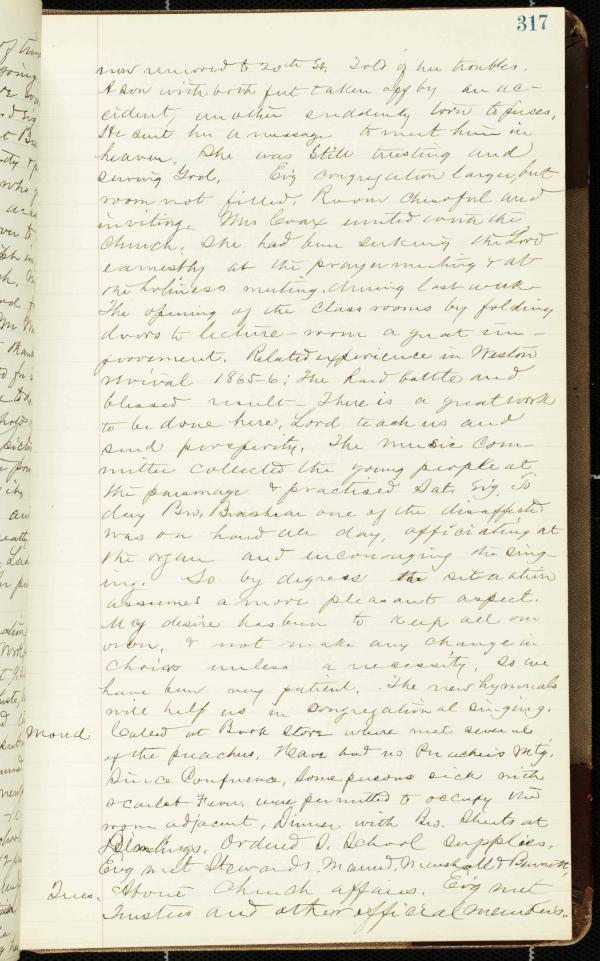 317
now removed to 20th St. Told of her troubles.
A son with both feet taken off by an ac-
cident, another suddenly torn to pieces.
He sent her a message to meet him in
heaven. She was still trusting and
serving God. Ev'g congregation larger, but
room not filled. Room cheerful and
inviting. Mrs Coax united with the
church. She had been seeking the Lord
earnestly at the prayermeeting & at
the holiness meeting, during last week.
The opening of the class rooms by folding
doors to lecture-room a great im-
provement. Related experience in Weston
revival 1865-6; The hard battle and
blessed result - There is a great work
to be done here, Lord teach us and
send prosperity. The music com-
mittee collected the young people at
the parsonage & practised Sat. Ev'g. To
day Bro. Brashear one of the disaffected
was on hand all day, officiating at
the organ and encouraging the sing-
ing. So by degrees the situation
assumes a more pleasant aspect.
My desire has been to keep all our
own, & not make any change in
choir unless a necessity, so we
have been very patient. The new hymnals
will help us in congregational singing.
Mond Called at Book Store where met several
of the preachers. Have had no Preachers Mtg.
since Conference, Some persons sick with
scarlet Fever were permitted to occupy the
room adjacent, Dinner with Bro. Sheets at
Ordered S. School supplies.
Ev'g met Stewards Marshall & Burnett,
Tues. About Church affairs. Ev'g met
Trustees and other official members.